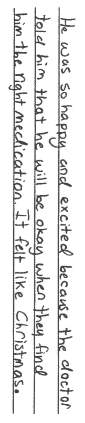 He was so happy and excited because the doctor
told him that he will be okay when they find
him the right medication. It felt like Christmas.